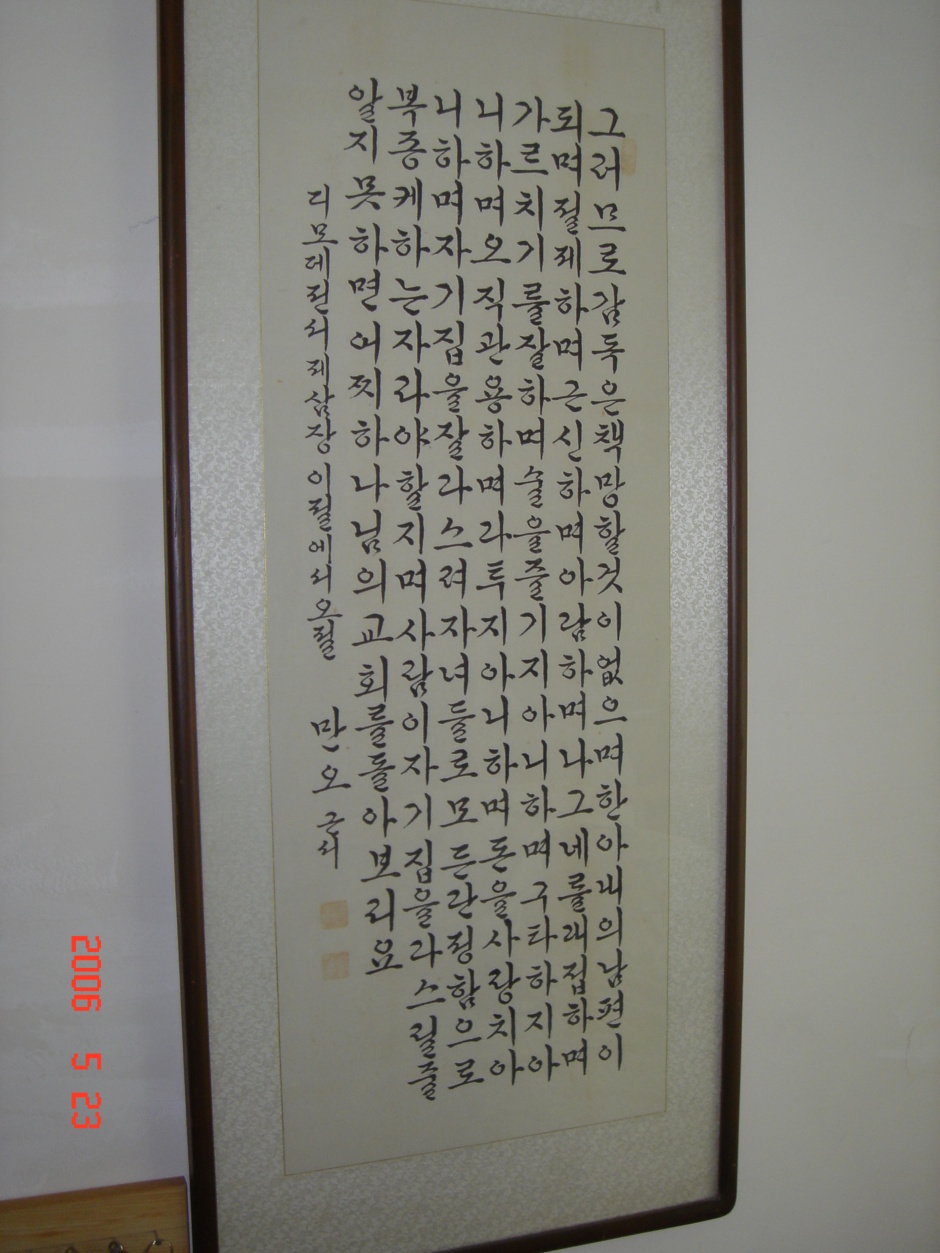 그러므로감독은책망할것이없으며한아내의남편이
되며절제하며근신하며아담하며나그네를대접하며
가르치기를잘하며술을즐기지아니하며구타하지아
니하며오직관용하며다투지아니하며돈을사랑치아
니하며자기집을잘다스려자녀들로모든단정함으로
복종케하는자라야할지며사람이자기집을다스릴줄
알지못하면어찌하나님의교회를돌아보리요
디모데전서제삼장이절에서오절 만오 근서
2006 5 23